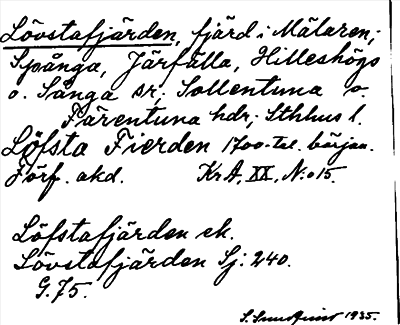 Lövstafjärden, fjärd i Mälaren;
Spånga, Järfälla, Hilleshögs
o. Sånga sr; Sollentuna o.
Färentuna hdr; Sthlms l.
Löfsta Fierden 1700-tal. början.
Förf. okd. KrA, XX, No 15.
Löfstafjärden ek.
Lövstafjärden Sj: 240.
G. 75.
1935.